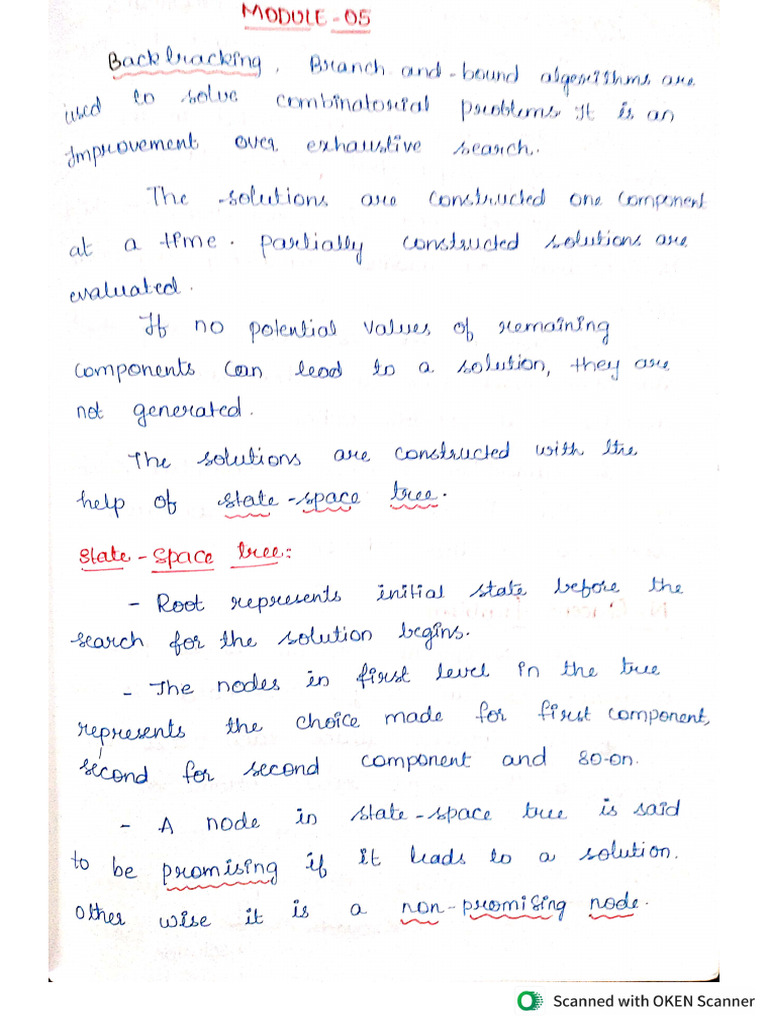 MODULE-05
Backtracking, Branch and-bound algorithms are
used to solve combinatorial problems. It is an
Improvement over exhaustive search.
The solutions are constructed one component
at a time. Partially constructed solutions are
evaluated.
If no potential values of remaining
components can lead to a solution, they are
not generated.
The solutions are constructed with the
help of state-space tree.
State-space tree:
- Root represents initial state before the
search for the solution begins.
- The nodes in first level in the tree
represents the choice made for first component,
second for second component and so-on.
- A node in state-space tree is said
to be promising if it leads to a solution.
other wise it is a non-promising node.
Scanned with OKEN Scanner